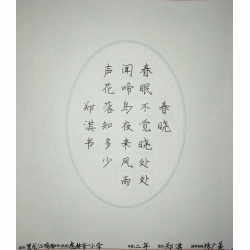 春晓
春眠不觉晓处处
闻啼鸟夜来风雨
声花落知多少
郑淇书
二年 郑淇